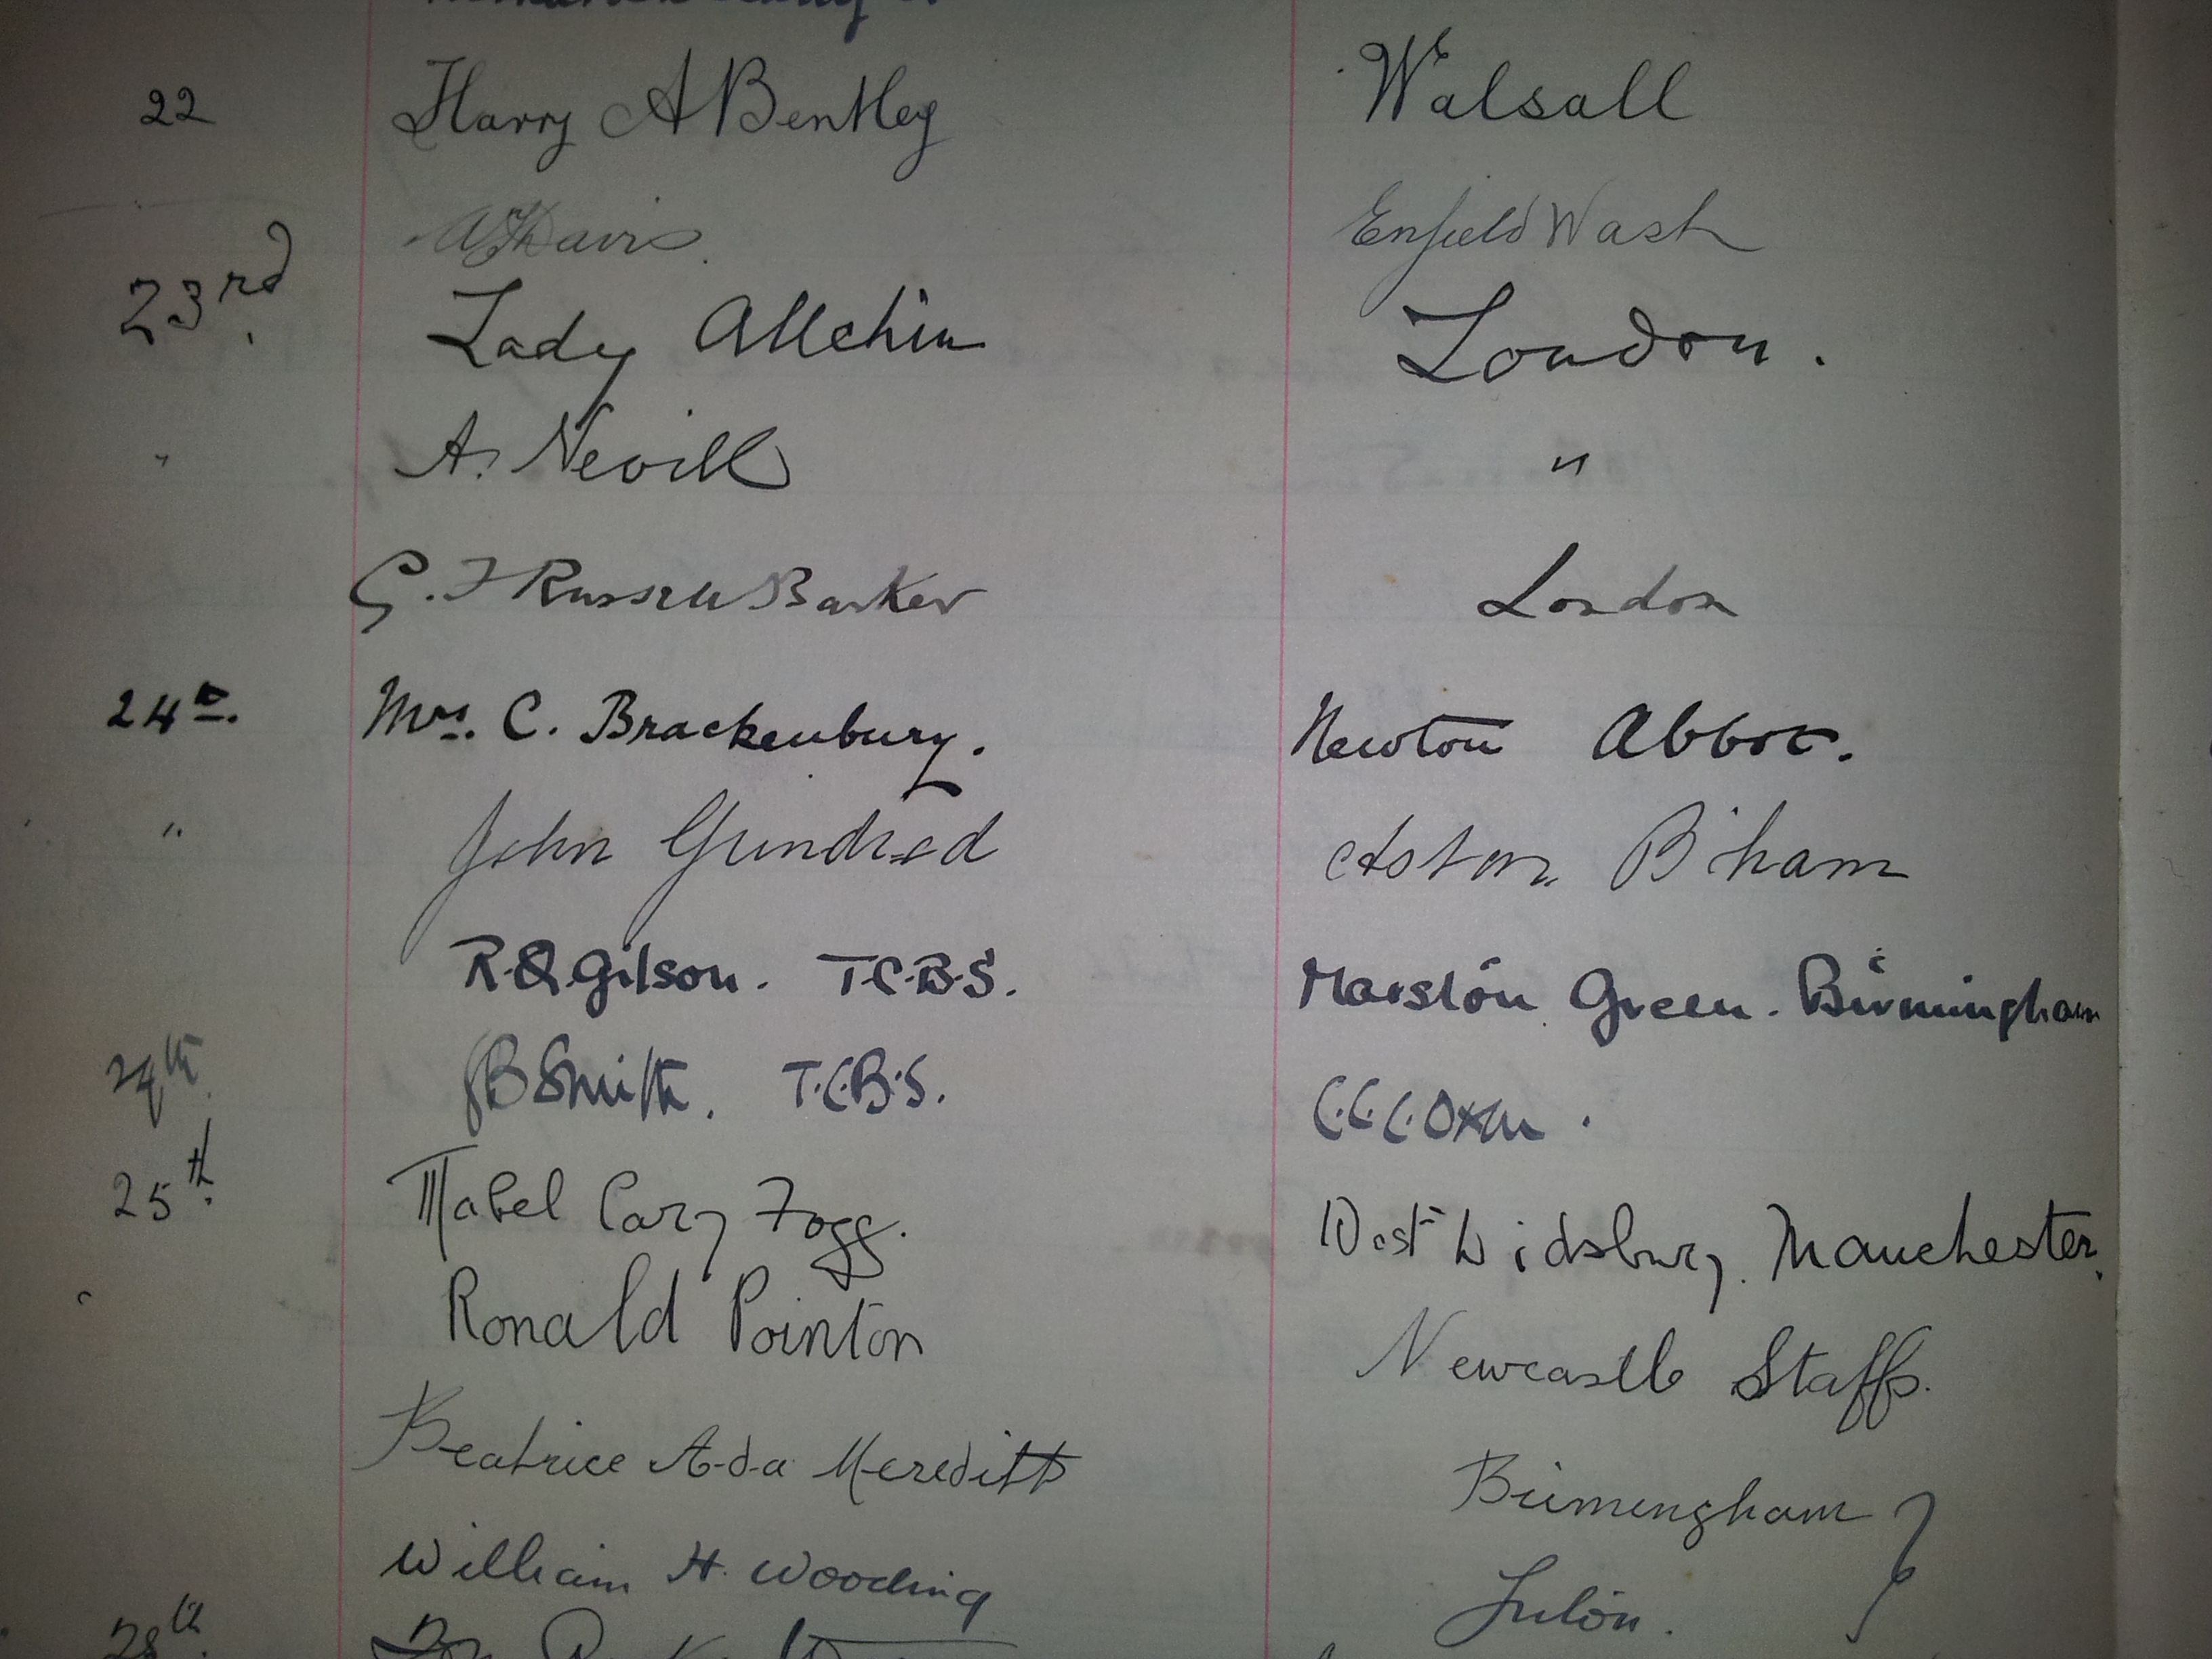 22 Harry A Bentley Walsall
Enfield Wash
23rd. Lady Allchin London.
" A. Nevill "
G. F Russell Barker London
24th. Mrs. C. Brackenbury. Newton Abbot.
" John Gundred Aston B'ham
R.Q Gilson. T.C.B.S. Marston Green. Birmingham
24th GB Smith. T.C.B.S. C.C.C. Oxon.
25th. Mabel Cary Fogg. West Didsbury. Manchester.
" Ronald Pointon Newcastle Staffs.
Beatrice Ada Meredith Birmingham
William H. Wooding Luton.
28th